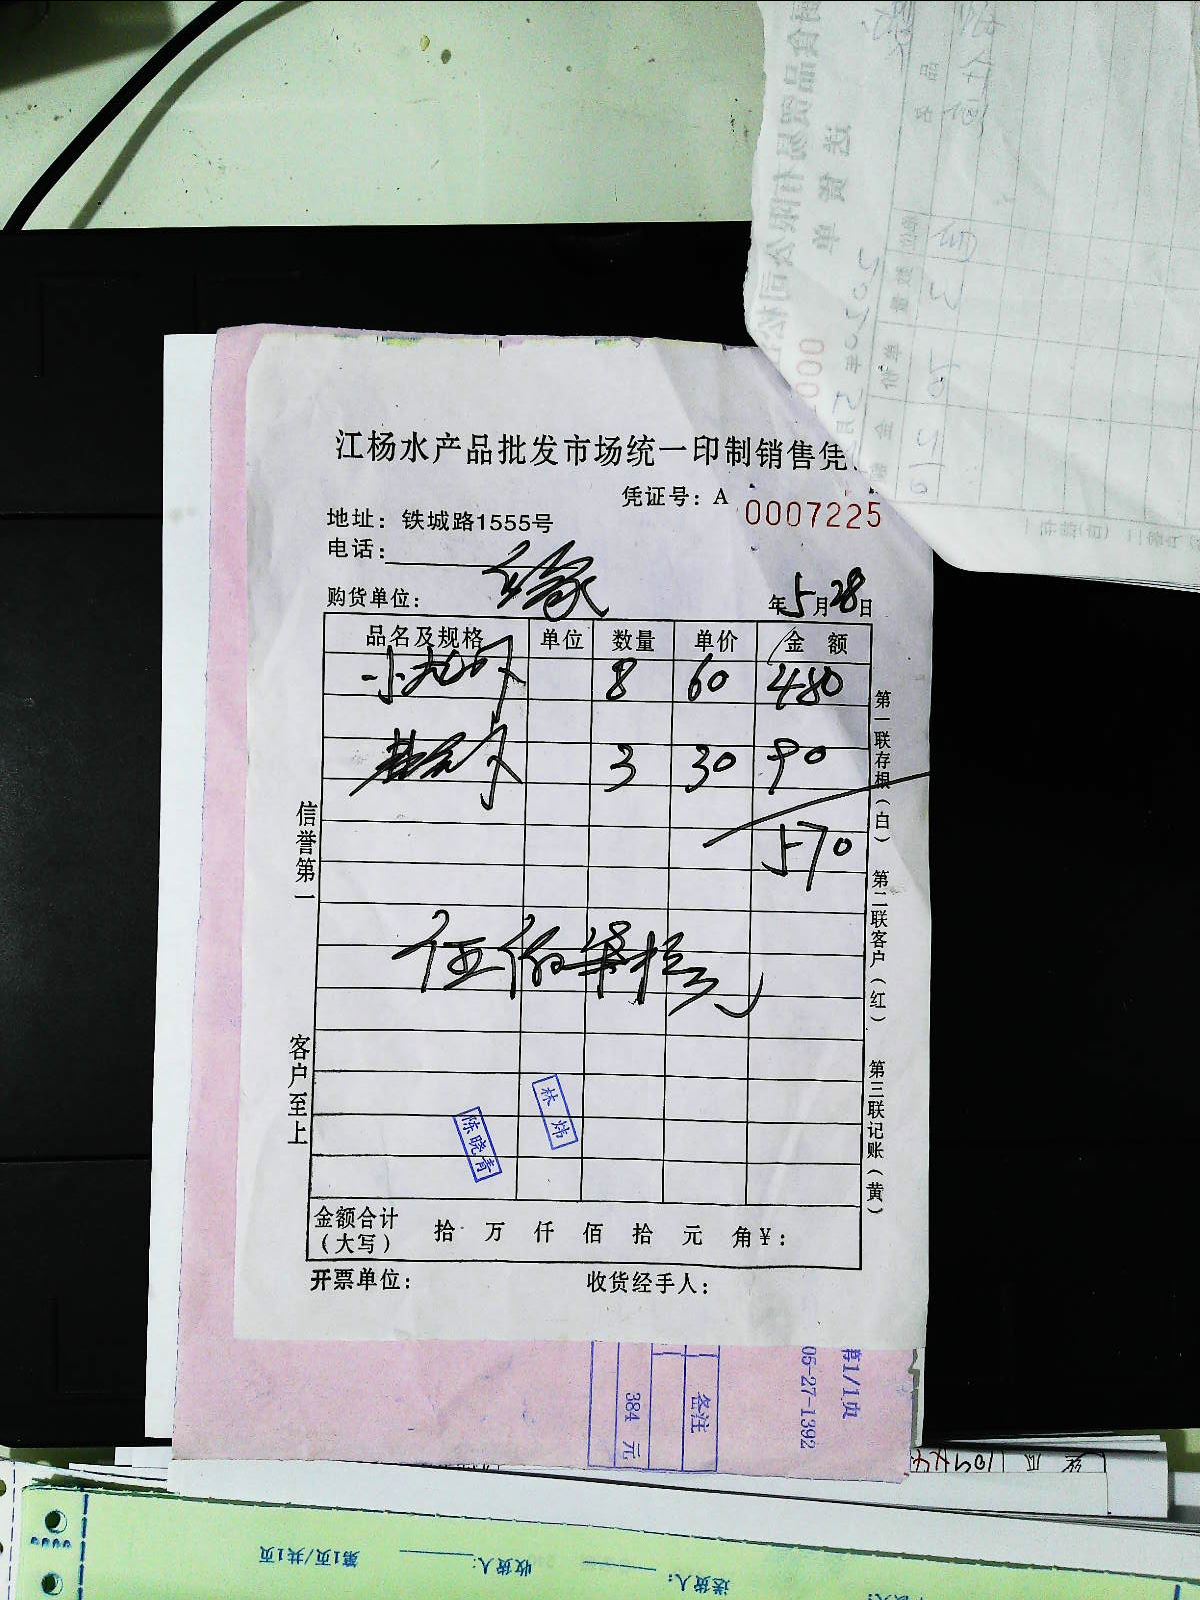 江杨水产品批发市场统一印制销售凭
凭证号：A 0007225
地址：铁城路1555号
电话：
购货单位：
年5月28日
品名及规格 单位 数量 单价 金 额
小龙虾 8 60 480
3 30 90
570
伍佰柒拾元
信誉第一
客户至上
第一联存根（白）
第二联客户（红）
第三联记账（黄）
林炜
陈晓青
金额合计（大写） 拾 万 仟 佰 拾 元 角 ¥：
开票单位： 收货经手人：
第1/1页
05-27-1392
备注
384 元
第1页/共1页
收货人：
送货人：
送货单